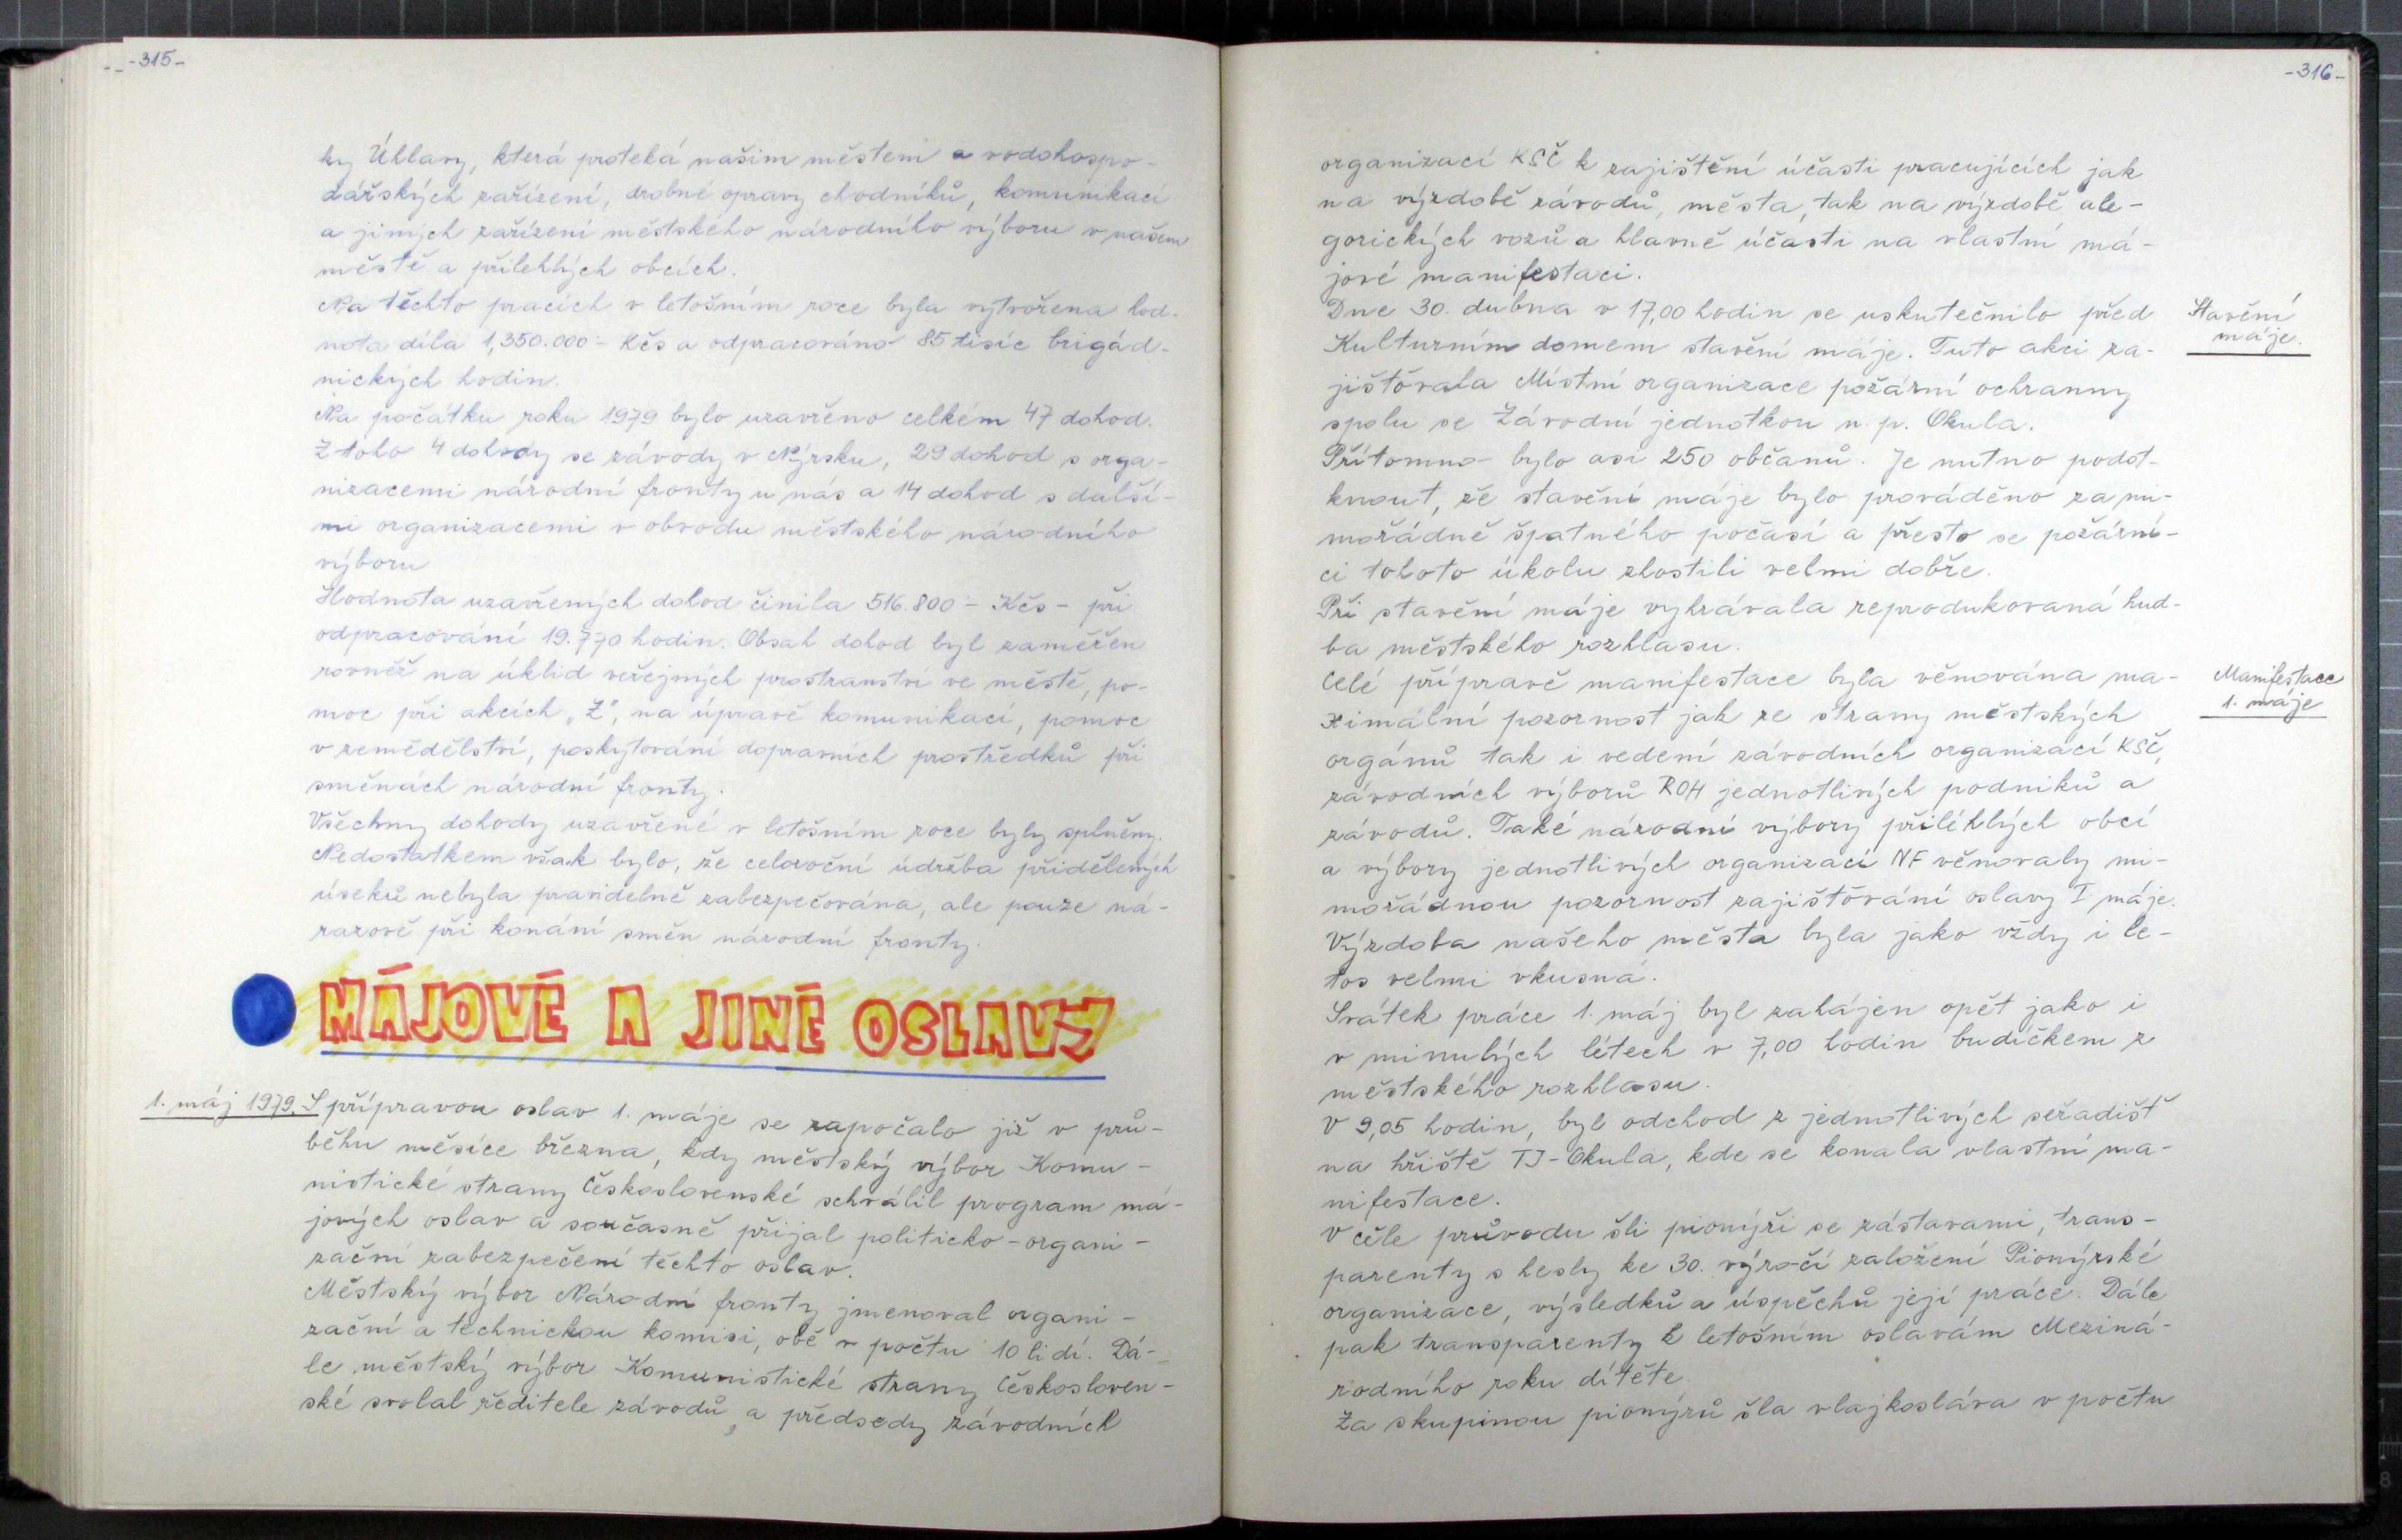 -315-
ky Úhlavy, která protéká našim městem a vodohospo-
dářských zařízení, drobné opravy chodníků, komunikací
a jiných zařízení městského národního výboru v našem
městě a přilehlých obcích.
Na těchto pracích v letošním roce byla vytvořena hod-
nota díla 1,350.000.- Kčs a odpracováno 85 tisíc brigád-
nických hodin.
Na počátku roku 1979 bylo uzavřeno celkém 47 dohod.
Z toho 4 dohody se závody v Nýrsku, 29 dohod s orga-
nizacemi národní fronty u nás a 14 dohod s další-
mi organizacemi v obvodu městského národního
výboru
Hodnota uzavřených dohod činila 516.800.- Kčs - při
odpracování 19.770 hodin. Obsah dohod byl zaměřen
rovněž na úklid veřejných prostranství ve městě, po-
moc při akcích „Z", na úpravě komunikací, pomoc
v zemědělství, poskytování dopravních prostředků při
směnách národní fronty.
Všechny dohody uzavřené v letošním roce byly splněny.
Nedostatkem však bylo, že celoroční údržba přidělených
úseků nebyla pravidelně zabezpečována, ale pouze ná-
razově při konání směn národní fronty.
MÁJOVÉ A JINÉ OSLAVY
1. máj 1979. S přípravou oslav 1. máje se započalo již v prů-
běhu měsíce března, kdy městský výbor Komu-
nistické strany Československé schválil program má-
jových oslav a současně přijal politicko-organi-
zační zabezpečení těchto oslav.
Městský výbor Národní fronty jmenoval organi-
zační a technickou komisi, obě v počtu 10 lidí. Dá-
le městský výbor Komunistické strany Českosloven-
ské svolal ředitele závodů a předsedy závodních
-316-
organizací KSČ k zajištění účasti pracujících jak
na výzdobě závodů, města, tak na výzdobě ale-
gorických vozů a hlavně účasti na vlastní má-
jové manifestaci.
Dne 30. dubna v 17,00 hodin se uskutečnilo před
Stavění
máje.
Kulturním domem stavění máje. Tuto akci za-
jišťovala Místní organizace požární ochranny
spolu se Závodní jednotkou n. p. Okula.
Přítomno bylo asi 250 občanů. Je nutno podot-
knout, že stavění máje bylo prováděno za mi-
mořádně špatného počasí a přesto se požární-
ci tohoto úkolu zhostili velmi dobře.
Při stavění máje vyhrávala reprodukovaná hud-
ba městského rozhlasu.
Celé přípravě manifestace byla věnována ma-
Manifestace
1. máje
ximální pozornost jak ze strany městských
orgánů tak i vedení závodních organizací KSČ,
závodních výborů ROH jednotlivých podniků a
závodů. Také národní výbory přiléhlých obcí
a výbory jednotlivých organizací NF věnovaly mi-
mořádnou pozornost zajišťování oslavy I máje.
Výzdoba našeho města byla jako vždy i le-
tos velmi vkusná.
Svátek práce 1. máj byl zahájen opět jako i
v minulých létech v 7,00 hodin budíčkem z
městského rozhlasu.
V 9,05 hodin, byl odchod z jednotlivých seřadišť
na hřiště TJ-Okula, kde se konala vlastní ma-
nifestace.
V čele průvodu šli pionýři se zástavami, trans-
parenty s hesly ke 30. výročí založení Pionýrské
organizace, výsledků a úspěchů její práce. Dále
pak transparenty k letošním oslavám Meziná-
rodního roku dítěte.
Za skupinou pionýrů šla vlajkosláva v počtu